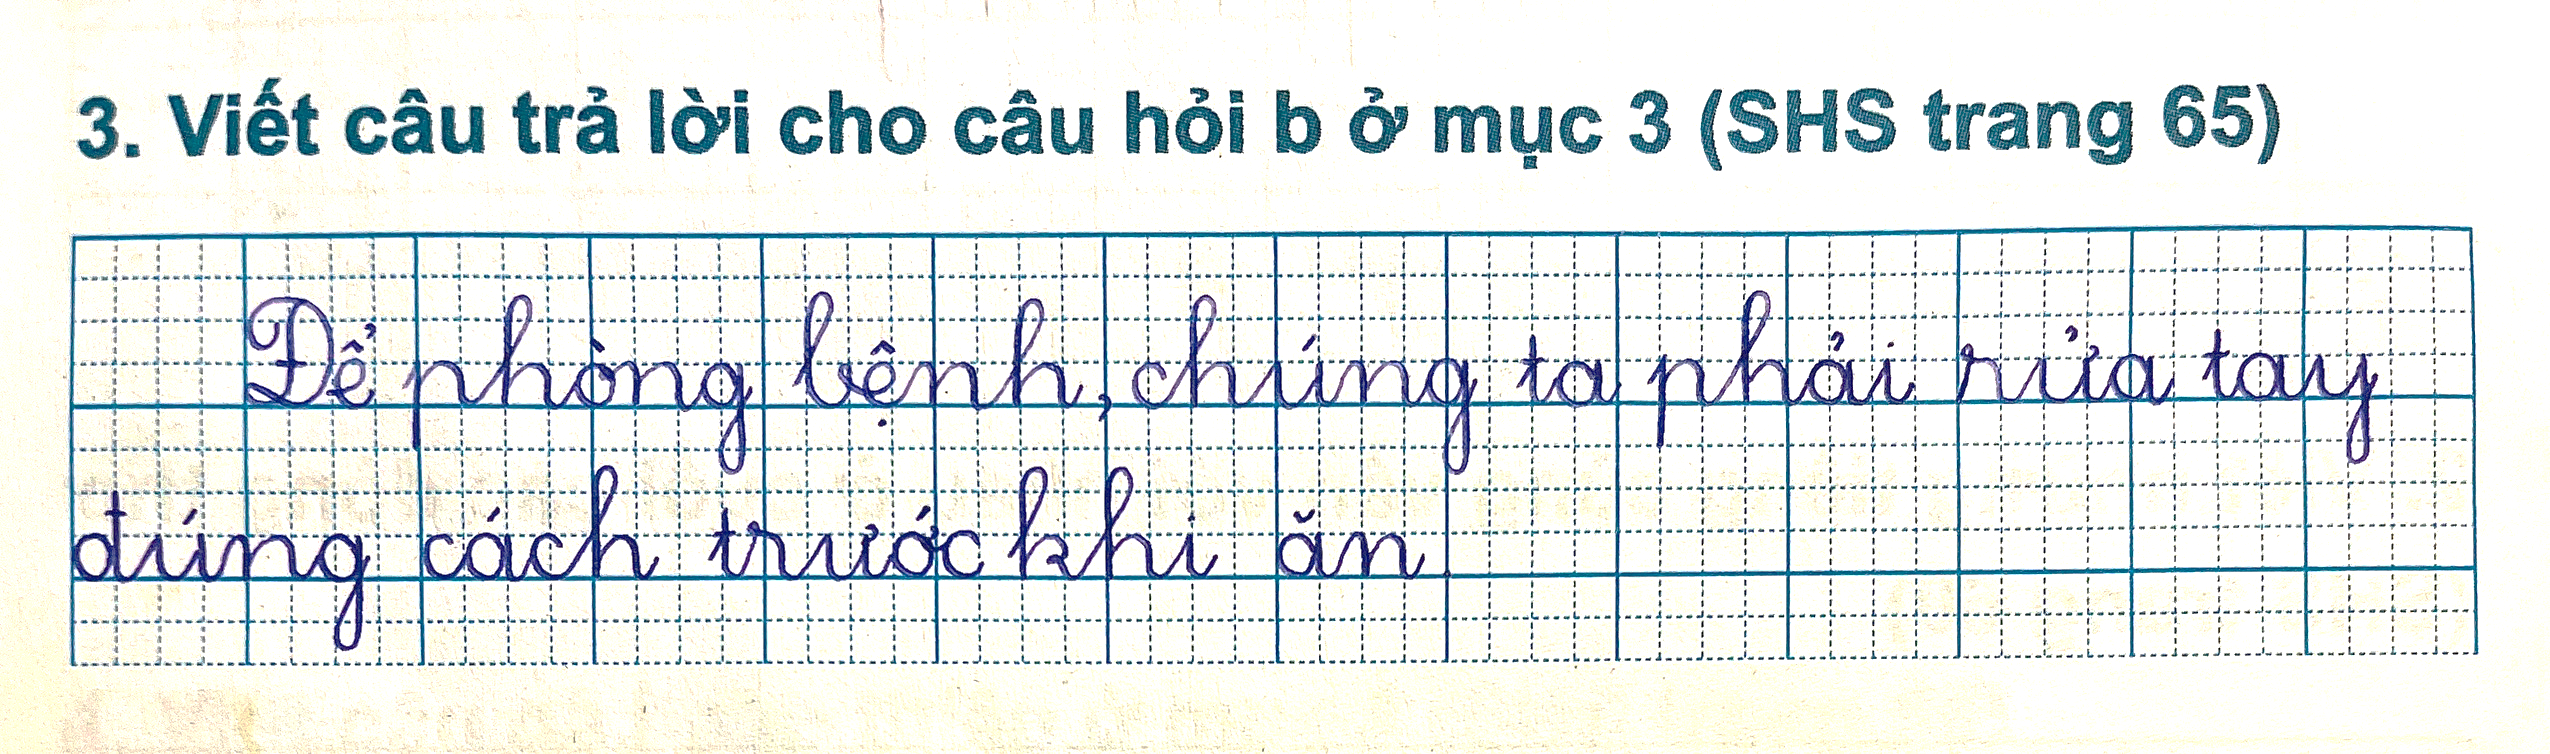 3. Viết câu trả lời cho câu hỏi b ở mục 3 (SHS trang 65)
Để phòng bệnh, chúng ta phải rửa tay
đúng cách trước khi ăn.